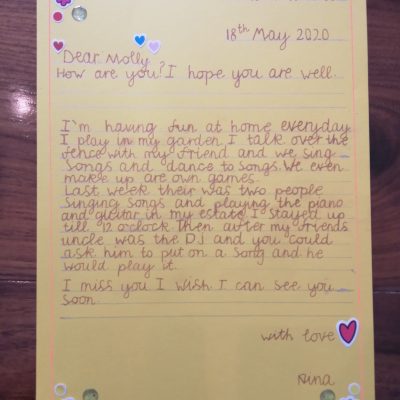 18th May 2020
Dear Molly
How are you? I hope you are well.
I'm having fun at home everyday
I play in my garden I talk over the
fence with my friend and we sing
songs and dance to songs. We even
make up are own games.
Last week their was two people
singing songs and playing the piano
and guitar in my estate I stayed up
till 12 o'clock Then after my friends
uncle was the DJ and you could
ask him to put on a song and he
would play it.
I miss you I wish I can see you
soon.
with love
Nina